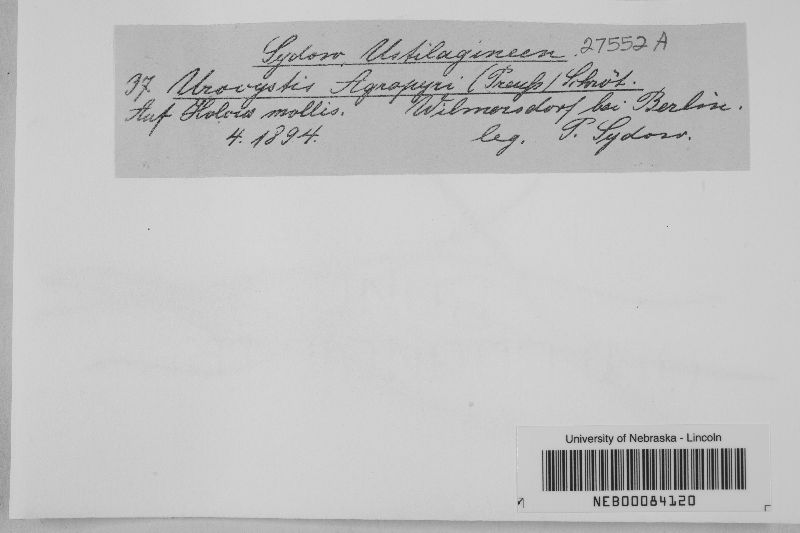 Sydow, Ustilagineen. 27552 A
37. Urocystis Agropyri (Preuss) Schröt.
Auf Holcus mollis. Wilmersdorf bei Berlin.
4. 1894. leg. P. Sydow.
University of Nebraska - Lincoln
NEB00084120